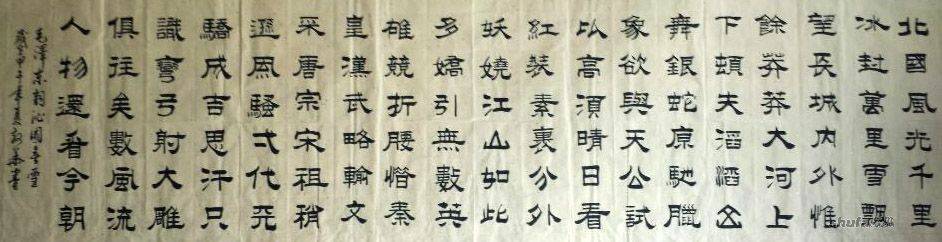 北國風光千里
冰封萬里雪飄
望長城內外惟
餘莽莽大河上
下頓失滔滔山
舞銀蛇原馳臘
象欲與天公試
比高須晴日看
紅裝素裹分外
妖嬈江山如此
多嬌引無數英
雄競折腰惜秦
皇漢武略輸文
采唐宗宋祖稍
遜風騷弌代天
驕成吉思汗只
識彎弓射大雕
俱往矣數風流
人物還看今朝
毛澤東詞沁園春雪
歲在甲午年夏書